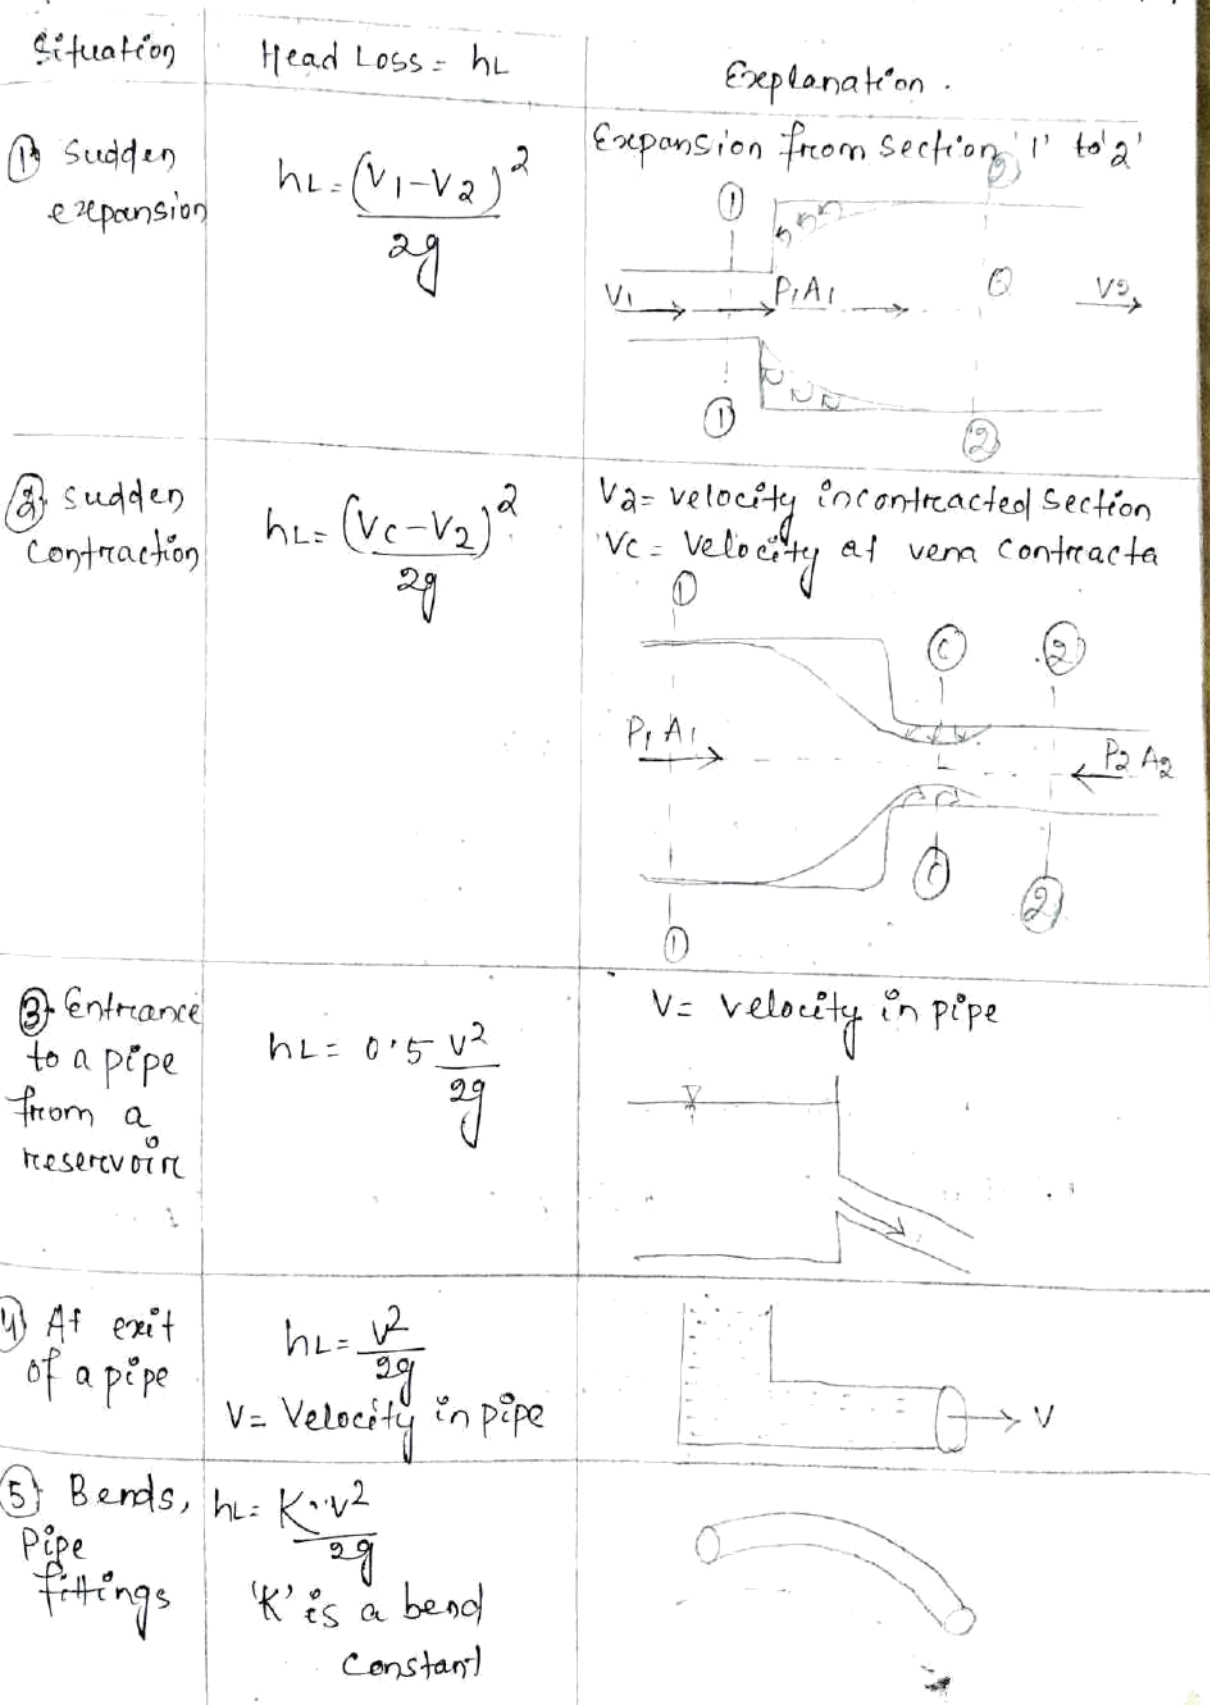 Situation
Head Loss = hL
Explanation.
① Sudden
expansion
hL = (V1-V2)²
2g
Expansion from section '1' to '2'
①
②
V1
P1A1
②
V2
①
②
② Sudden
contraction
hL = (Vc-V2)²
2g
V2 = velocity in contracted section
Vc = Velocity at vena contracta
①
C
②
P1 A1
P2 A2
C
②
①
③ Entrance
to a pipe
from a
reservoir
hL = 0.5 V²
2g
V = velocity in pipe
④ At exit
of a pipe
hL = V²
2g
V = Velocity in pipe
V
⑤ Bends,
Pipe
fittings
hL = K.V²
2g
'K' is a bend
Constant